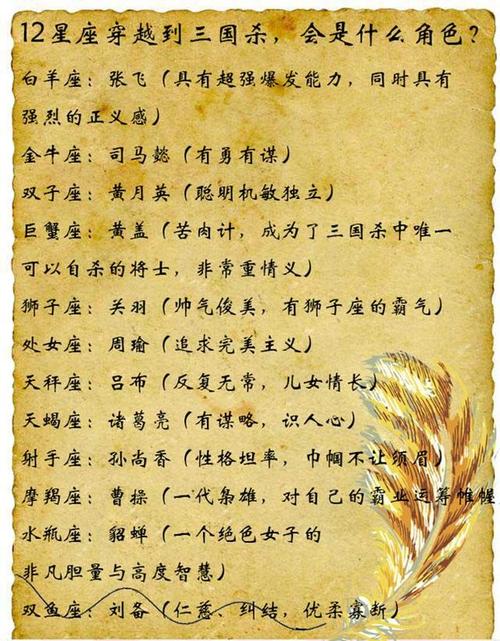 12星座穿越到三国杀，会是什么角色？
白羊座：张飞（具有超强爆发能力，同时具有
强烈的正义感）
金牛座：司马懿（有勇有谋）
双子座：黄月英（聪明机敏独立）
巨蟹座：黄盖（苦肉计，成为了三国杀中唯一
可以自杀的将士，非常重情义）
狮子座：关羽（帅气俊美，有狮子座的霸气）
处女座：周瑜（追求完美主义）
天秤座：吕布（反复无常，儿女情长）
天蝎座：诸葛亮（有谋略，识人心）
射手座：孙尚香（性格坦率，巾帼不让须眉）
摩羯座：曹操（一代枭雄，对自己的霸业运筹帷幄
水瓶座：貂蝉（一个绝色女子的
非凡胆量与高度智慧）
双鱼座：刘备（仁慈、纠结，优柔寡断）